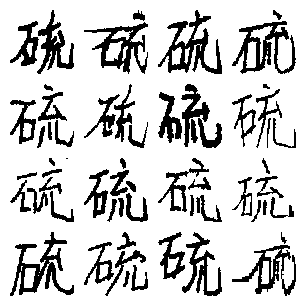 硫硫硫硫
硫硫硫硫
硫硫硫硫
硫硫硫硫